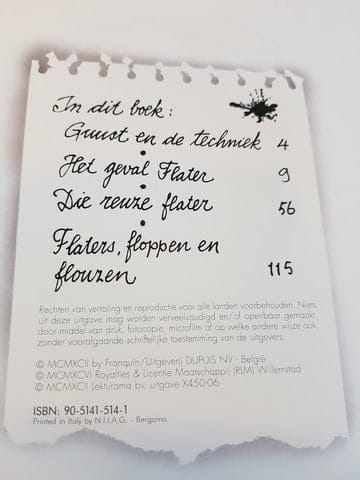 In dit boek:
Guust en de techniek 4
Het geval Flater 9
Die reuze flater 56
Flaters, floppen en
flouzen 115
Rechten van vertaling en reproductie voor alle landen voorbehouden. Niets
uit deze uitgave mag worden verveelvoudigd en/of openbaar gemaakt
door middel van druk, fotocopie, microfilm of op welke andere wijze ook,
zonder voorafgaande schriftelijke toestemming van de uitgevers.
© MCMXCII by Franquin/Uitgeverij DUPUIS NV - België
© MCMXCVI Royalties & Licentie Maatschappij (RLM) Willemstad
© MCMXCII Lekturama bv, uitgave X450-06
ISBN: 90-5141-514-1
Printed in Italy by N.I.I.A.G. - Bergamo